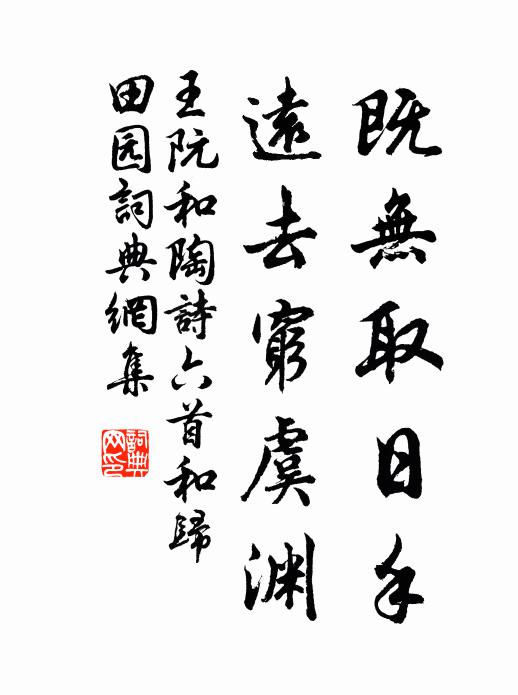 既無取日手
遠去窮虞渊
王阮和陶詩六首和歸
田园詞典網集
詞典
网印